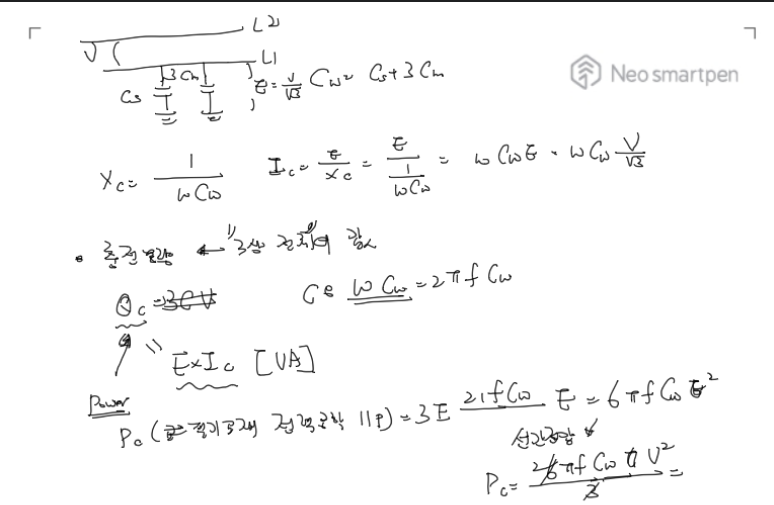 L2
V L1
Cs 3Cm E = V/√3 Cw = Cs + 3Cm
Neo smartpen
Xc = 1/ωCw Ic = E/Xc = E/(1/ωCw) = ωCwE = ωCw V/√3
• 충전용량 ← "3상 전체" 값
Qc = 3CV ωCw = 2πfCw
E×Ic [VA]
Power
Pc ( 전기 전력공학 11p) = 3E 2πfCw E = 6πfCwE²
선간전압
Pc = 6πfCw V²/3 =